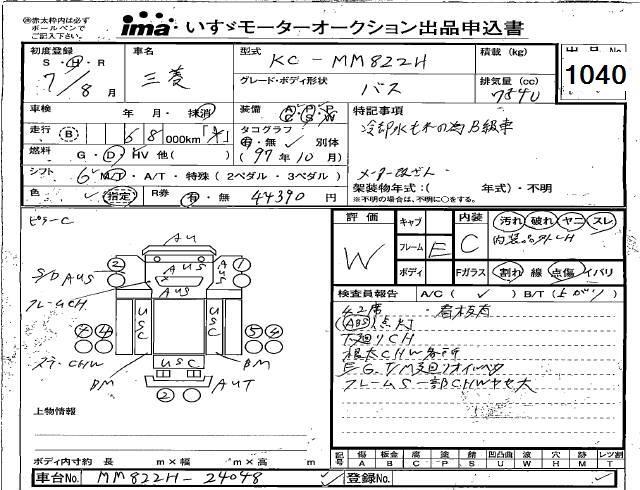 ※赤太枠内は必ず
ボールペンで
ご記入下さい。
ima いすゞモーターオークション出品申込書
初度登録 車名 型式 KC-MM822H 積載 (kg) 出品No
S・H・R 三菱 グレード・ボディ形状 バス 排気量 (cc) 1040
7/8月 7840
車検 年・月・抹消 装備 A・P・P C・S・W 特記事項
走行 B 68 000km タコグラフ 冷却水もれの為B級車
有・無 別体
燃料 G・D・HV 他( ) (97年10月) メーター改ざん
シフト 6 MT・A/T・特殊(2ペダル・3ペダル) 架装物年式:( 年式)・不明
色 指定 R券 有・無 44390 円 ※不明の場合は、不明に○をする。
ピラーC 評価 キャブ 内装 汚れ 破れ ヤニ スレ
AU W フレーム E C
2 AUS AUS 1 ボディ Fガラス 割れ 線 点傷 イバリ
S/D AUS AUS
フレームCH 検査員報告 A/C(✓) B/T(上がり)
USC USC 42席・看板有
4 5 ABS点灯
ステーCHW 下廻りCH
BM USC BM
AUT E/G T/M廻りオイルハク
2 フレームS一部CHWヤセ大
上物情報
ボディ内寸約 長 m×幅 m×高 m 記号 傷A 板金B 腐C 塗P 錆S 凹凸曲U 波W 穴H 跡M レンズ割T
車台No. MM822H-24048 登録No.